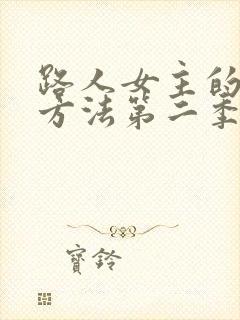 路人女主的
方法第二季
寶鈴